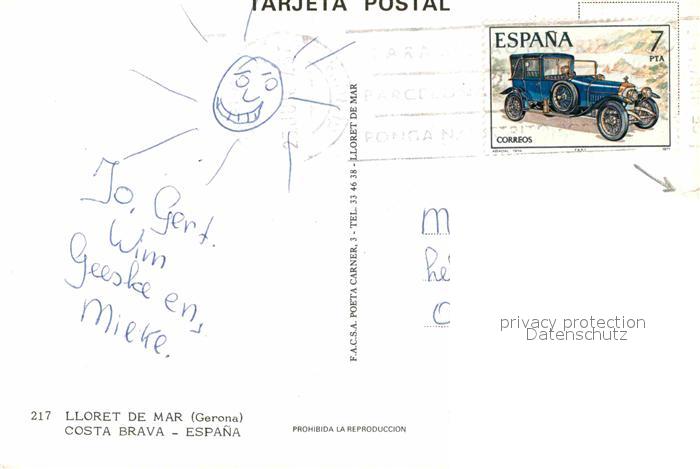 TARJETA POSTAL
ESPAÑA 7
PTA
CORREOS
1977
Jo, Gert.
Wim
Geeske en,
Mieke.
F.A.C.S.A. POETA CARNER, 3 - TEL. 33 46 38 - LLORET DE MAR
M
hé
C
privacy protection
Datenschutz
217 LLORET DE MAR (Gerona)
COSTA BRAVA - ESPAÑA
PROHIBIDA LA REPRODUCCION